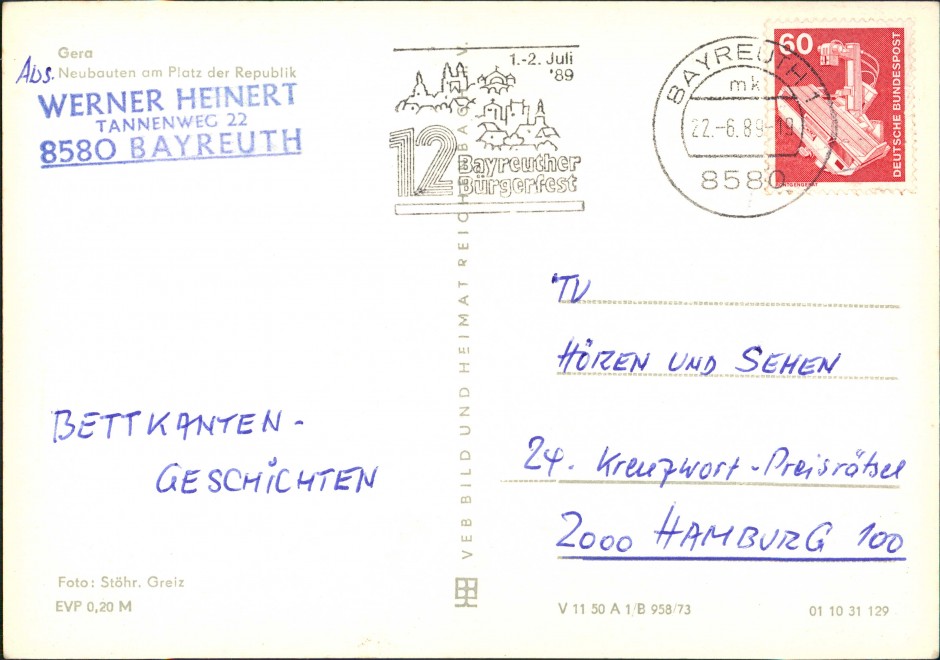 Gera
Abs. Neubauten am Platz der Republik
WERNER HEINERT
TANNENWEG 22
8580 BAYREUTH
1.-2. Juli
'89
12 Bayreuther
Bürgerfest
BAYREUTH 1
mk
22.-6.89-19
8580
60
DEUTSCHE BUNDESPOST
RÖNTGENGERÄT
TV
HÖREN UND SEHEN
24. Kreuzwort-Preisrätsel
2000 HAMBURG 100
BETTKANTEN-
GESCHICHTEN
VEB BILD UND HEIMAT REICHENBACH I. V.
Foto: Stöhr. Greiz
EVP 0,20 M
V 11 50 A 1/B 958/73
01 10 31 129